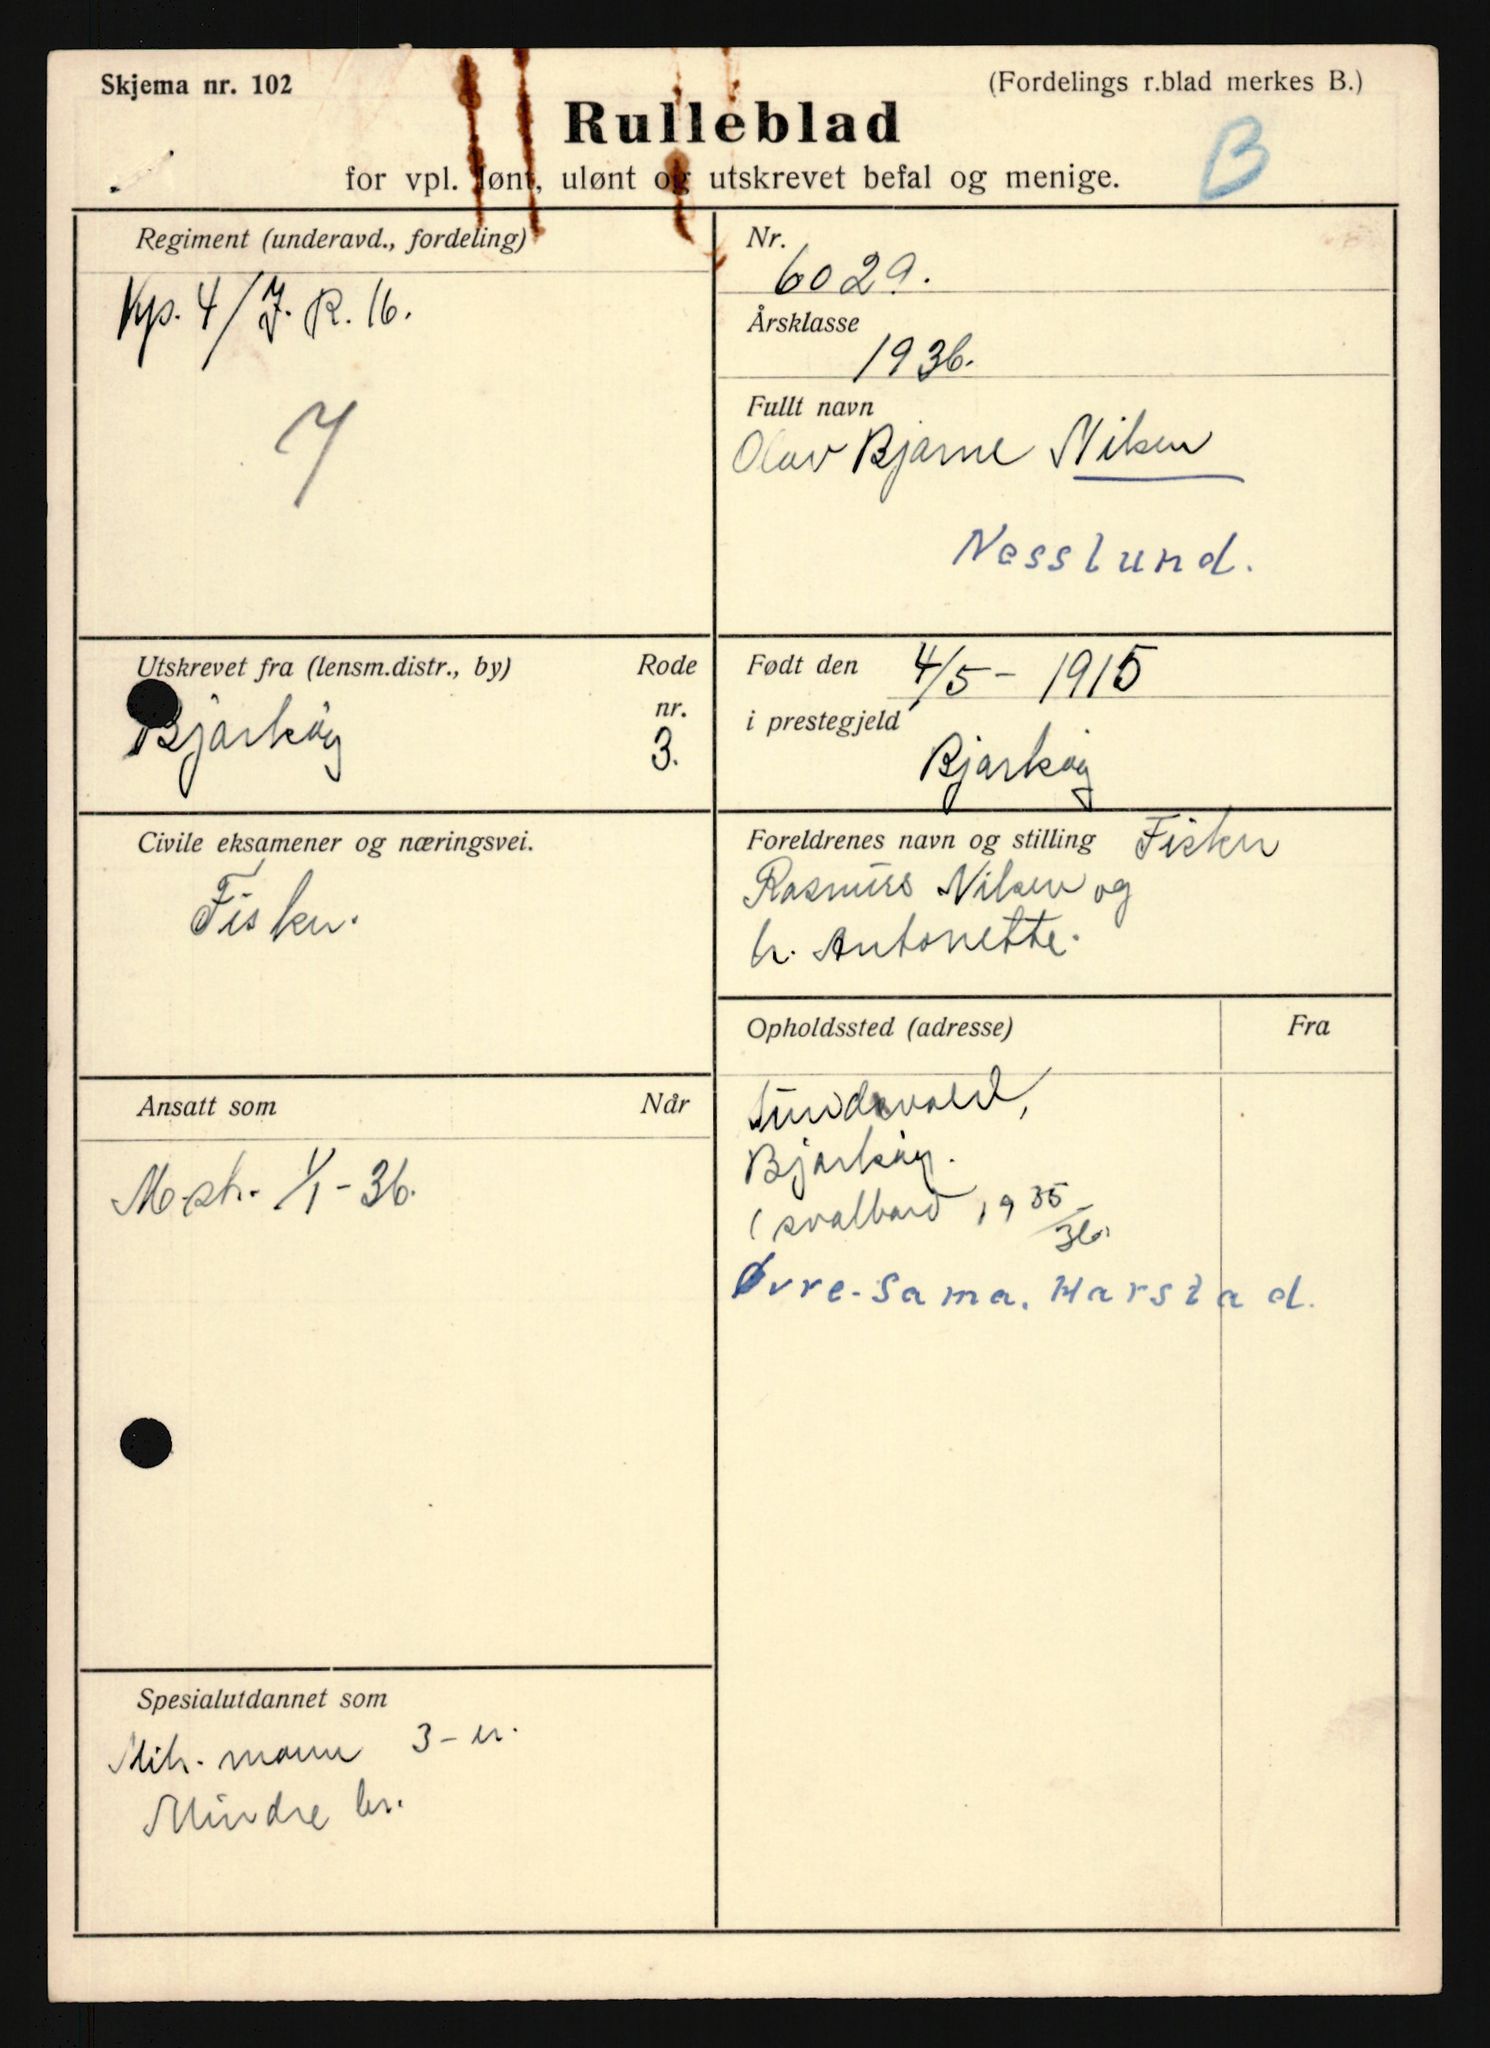 Skjema nr. 102
(Fordelings r.blad merkes B.)
Rulleblad
B
for vpl. lønt, ulønt og utskrevet befal og menige.
Regiment (underavd., fordeling)
Kp. 4/J. R. 16.
7
Nr.
6029.
Årsklasse
1936.
Fullt navn
Olav Bjarne Nilsen
Nesslund.
Utskrevet fra (lensm.distr., by)
Rode
nr.
Bjarkøy
3.
Født den
4/5 - 1915
i prestegjeld
Bjarkøy
Civile eksamener og næringsvei.
Fisker.
Foreldrenes navn og stilling Fisker
Rasmus Nilsen og
h. Antonette.
Ansatt som
Når
M.sk. 1/1 - 36.
Opholdssted (adresse)
Fra
Bjarkøy.
( svalbard 1935/36.
Øvre-Sama. Harstad.
Spesialutdannet som
Mitr. mann 3-er.
Mindre br.